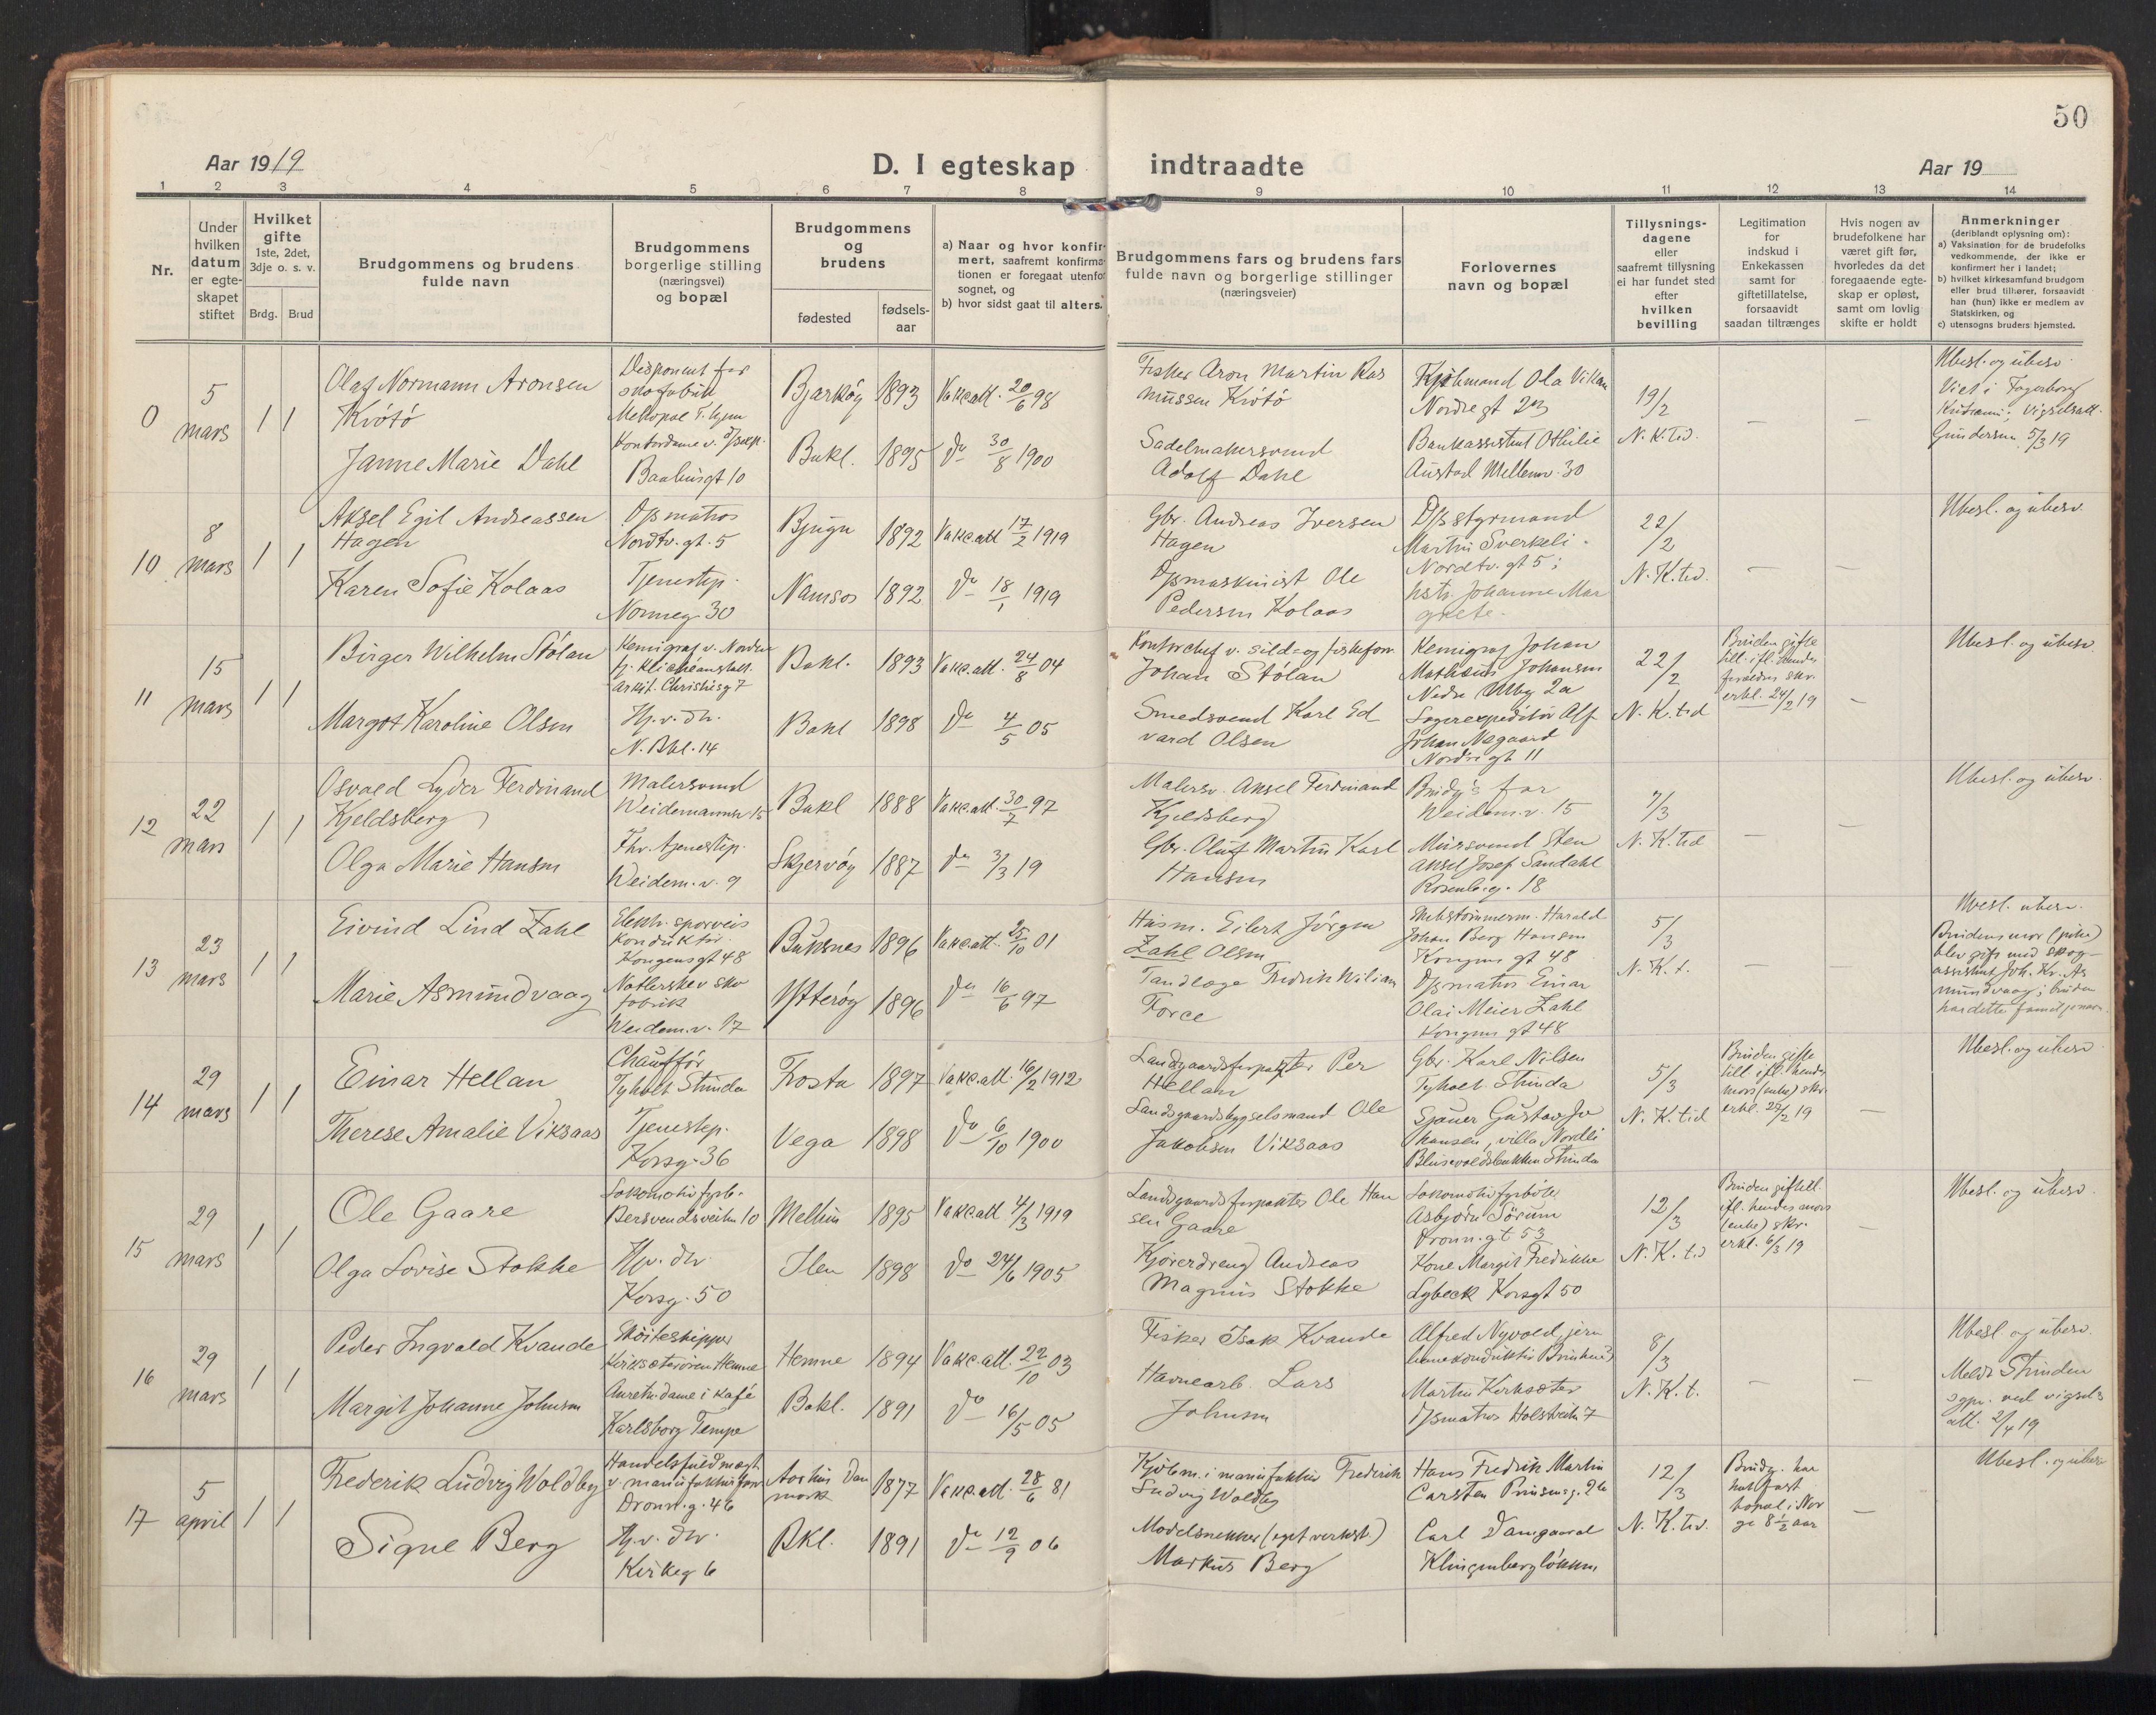 50
Aar 1919
D. I egteskap indtraadte
Aar 19
1 2 3 4 5 6 7 8 9 10 11 12 13 14
Nr.
Under
hvilken
datum
er egte-
skapet
stiftet
Hvilket
gifte
1ste, 2det,
3dje o. s. v.
Brdg. Brud
Brudgommens og brudens
fulde navn
Brudgommens
borgerlige stilling
(næringsvei)
og bopæl
Brudgommens
og
brudens
fødested
fødsels-
aar
a) Naar og hvor konfir-
mert, saafremt konfirma-
tionen er foregaat utenfo
sognet, og
b) hvor sidst gaat til alters.
Brudgommens fars og brudens fars
fulde navn og borgerlige stillinger
(næringsveier)
Forlovernes
navn og bopæl
Tillysnings-
dagene
eller
saafremt tillysning
ei har fundet sted
efter
hvilken
bevilling
Legitimation
for
indskud i
Enkekassen
samt for
giftetillatelse,
forsaavidt
saadan tiltrænges
Hvis nogen av
brudefolkene har
været gift før,
hvorledes da det
foregaaende egte-
skap er opløst,
samt om lovlig
skifte er holdt
Anmerkninger
(deriblandt oplysning om):
a) Vaksination for de brudefolks
vedkommende, der ikke er
konfirmert her i landet;
b) hvilket kirkesamfund brudgom
eller brud tilhører, forsaavidt
han (hun) ikke er medlem av
Statskirken, og
c) utensogns bruders hjemsted.
0
5
mars
1 1
Olaf Normann Aronsen
Krøtø
Janne Marie Dahl
Disponent for
skofabrik
Baahusgt 10
Bjarkøy 1893 Vakc.att. 20/6 98
Bakl. 1895 Do 30/8 1900
Fisker Aron Martin Ras
mussen Krøtø
Sadelmakersvend
Adolf Dahl
Ola Vikan
Nordregt 23
Bankassistent Othilie
Austad Mellemv. 30
19/2
N. K. Tid.
—
Ubesl. og ubesv.
Viet i Fagerborg
Vigselsatt.
Gundersen 5/3 19
10
8
mars
1 1
Aksel Egil Andreassen
Hagen
Karen Sofie Kolaas
D/s matros
Nordtv. gt. 5
Tjenestep.
Nonneg. 30
Bjugn 1892 Vakc.att 17/2 1919
Namsos 1892 Do 18/1 1919
Gbr. Andreas Iversen
Hagen
D/s maskinist Ole
Pedersen Kolaas
D/s styrmand
Martin Sverkeli.
Nordtv. gt 5;
hstr. Johanne Mar
grete.
22/2
N. K. tid.
— —
Ubesl. og ubesv.
11
15
mars
1 1
Birger Wilhelm Stølan
Margot Karoline Olsen
Kemigraf v. Nordre
fj. klichéanstalt.
Arkit. Christiesg 7
Hj. v. dr.
N. Bkl. 14
Bakl. 1893 Vakc.att. 24/8 04
Bakl 1898 Do 4/5 05
Kontorchef v. sild og fiskeforr.
Johan Stølan
Smedsvend Karl Ed
vard Olsen
Kemigraf Johan
Mathæus Johansen
Nedre Ilby 2a
Lagerexpeditør Alf
Johan Nægaard
Nordregt 11
22/2
N. K. tid
Bruden gifte
till. ifl. hendes
forældres skr.
erkl. 24/2 19
—
Ubesl. og ubesv.
12
22
mars
1 1
Osvald Lyder Ferdinand
Kjeldsberg
Olga Marie Hansen
Malersvend
Weidemannsv 15
Fhv. tjenestep.
Weidem. v. 9
Bakl 1888 Vakc.att. 30/7 97
Skjervøy 1887 Do 3/3 19
Malersv. Aksel Ferdinand
Kjeldsberg
Gbr. Oluf Martin Karl
Hansen
Brudg's far
Weidem. v. 15
Mursvend Sten
Aksel Josef Sandahl
Rosenbg. g. 18
7/3
N. K. Tid
— —
Ubesl. og ubesv.
13
23
mars
1 1
Eivind Lind Zahl
Marie Asmundvaag
Elektr. sporveis
konduktør.
Kongensgt 48
Natlerske v sko
fabrik
Weidem. v. 17
Buksnes 1896 Vakc.att. 25/10 01
Ytterøy 1896 Do 16/6 97
Husm. Eilert Jørgen
Zahl Olsen
Tandlæge Fredrik Wiliam
Force
Skibstømmerm. Harald
Johan Berg Hansen
Kongens gt 48
D/s matros Einar
Olai Meier Zahl
Kongens gt 48
5/3
N. K. t.
— —
Ubesl. ubesv.
Brudens mor (pike)
blev gift med skog-
assistent Joh. Kr. As
mundvaag; bruden
har dette familjenavn.
14
29
mars
1 1
Einar Hellan
Therese Amalie Viksaas
Chauffør
Tyholt Strinda
Tjenestep.
Korsg. 36
Frosta 1897 Vakc.att. 16/2 1912
Vega 1898 Do 6/10 1900
Landgaardsforpagter Per
Hellan
Landgaardsbygselmand Ole
Jakobsen Viksaas
Gbr. Karl Nilsen
Tyholt. Strinda
Sjauer Gustav Jo
hansen, villa Nordli
Blusevoldsbakken Strinda
5/3
N. K. tid
Bruden gifte
till ifl. hendes
mors (enke) skr.
erkl. 22/2 19
—
Ubesl. og ubesv.
15
29
mars
1 1
Ole Gaare
Olga Lovise Stokke
Lokomotivfyrb.
Bersvendsveien 10
Hj. v. dr.
Korsg. 50
Melhus 1895 Vakc.att 4/3 1919
Ilen 1898 Do 24/6 1905
Landgaardsforpakter Ole Han
sen Gaare
Kjøredreng Andreas
Magnus Stokke
Lokomotivfyrbøter
Asbjørn Sørum
Dronn. gt 53
Kone Margit Fredrikke
Lybeck Korsgt 50
12/3
N. K. tid
Bruden giftetill.
ifl. hendes mors
(enke) skr.
erkl. 6/3 19
—
Ubesl. og ubesv.
16
29
mars
1 1
Peder Ingvald Kvande
Margit Johanne Johnsen
Skøiteskipper
Kirksæterøren Hemne
Anretn. dame i kafé
Karlsborg Tempe
Hemne 1894 Vakc.att. 22/10 03
Bakl. 1891 Do 16/5 05
Fisker Isak Kvande
Havnearb. Lars
Johnsen
Alfred Nyvold, jern
banekonduktør
Martin Kirksæter
D/s matros Holstveien 7
8/3
N. K. t.
— —
Ubesl og ubesv.
Meldt Strinden
sgpr. ved vigsels
att. 2/4 19
17
5
april
1 1
Frederik Ludvig Woldby
Signe Berg
Handelsfuldmægt.
v. manufakturforr.
Dronn. g. 46
Hj. v. dr.
Kirkeg 6
Aarhus Dan
mark 1877 Vakc.att. 28/6 81
Bkl. 1891 Do 12/9 06
Kjøbm. i manufaktur Frederik
Ludvig Woldby
Modelsnekker (eget verkst.)
Markus Berg
Hans Fredrik Martin
Carsten Prinsensg. 26
Carl Damgaard
Klingenbergløkken
12/3
N. K. Tid.
Brudg. har
hat fast
bopæl i Nor
ge 8½ aar
—
Ubesl. og ubesv